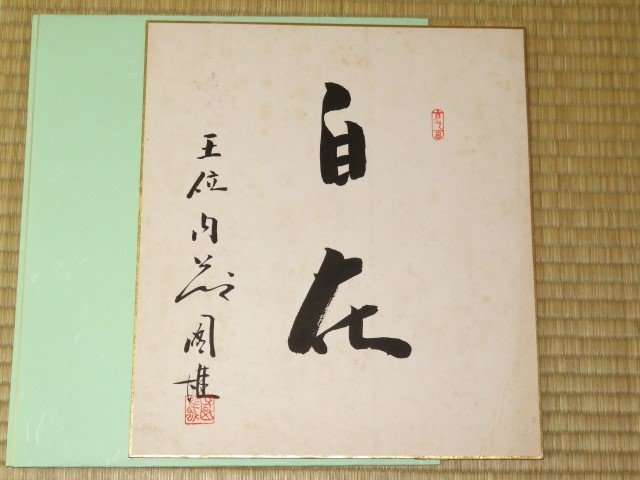 自在
王位 内藤國雄